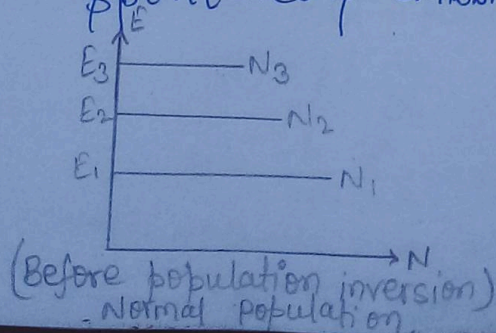 E
E3 N3
E2 N2
E1 N1
N
(Before population inversion)
Normal population